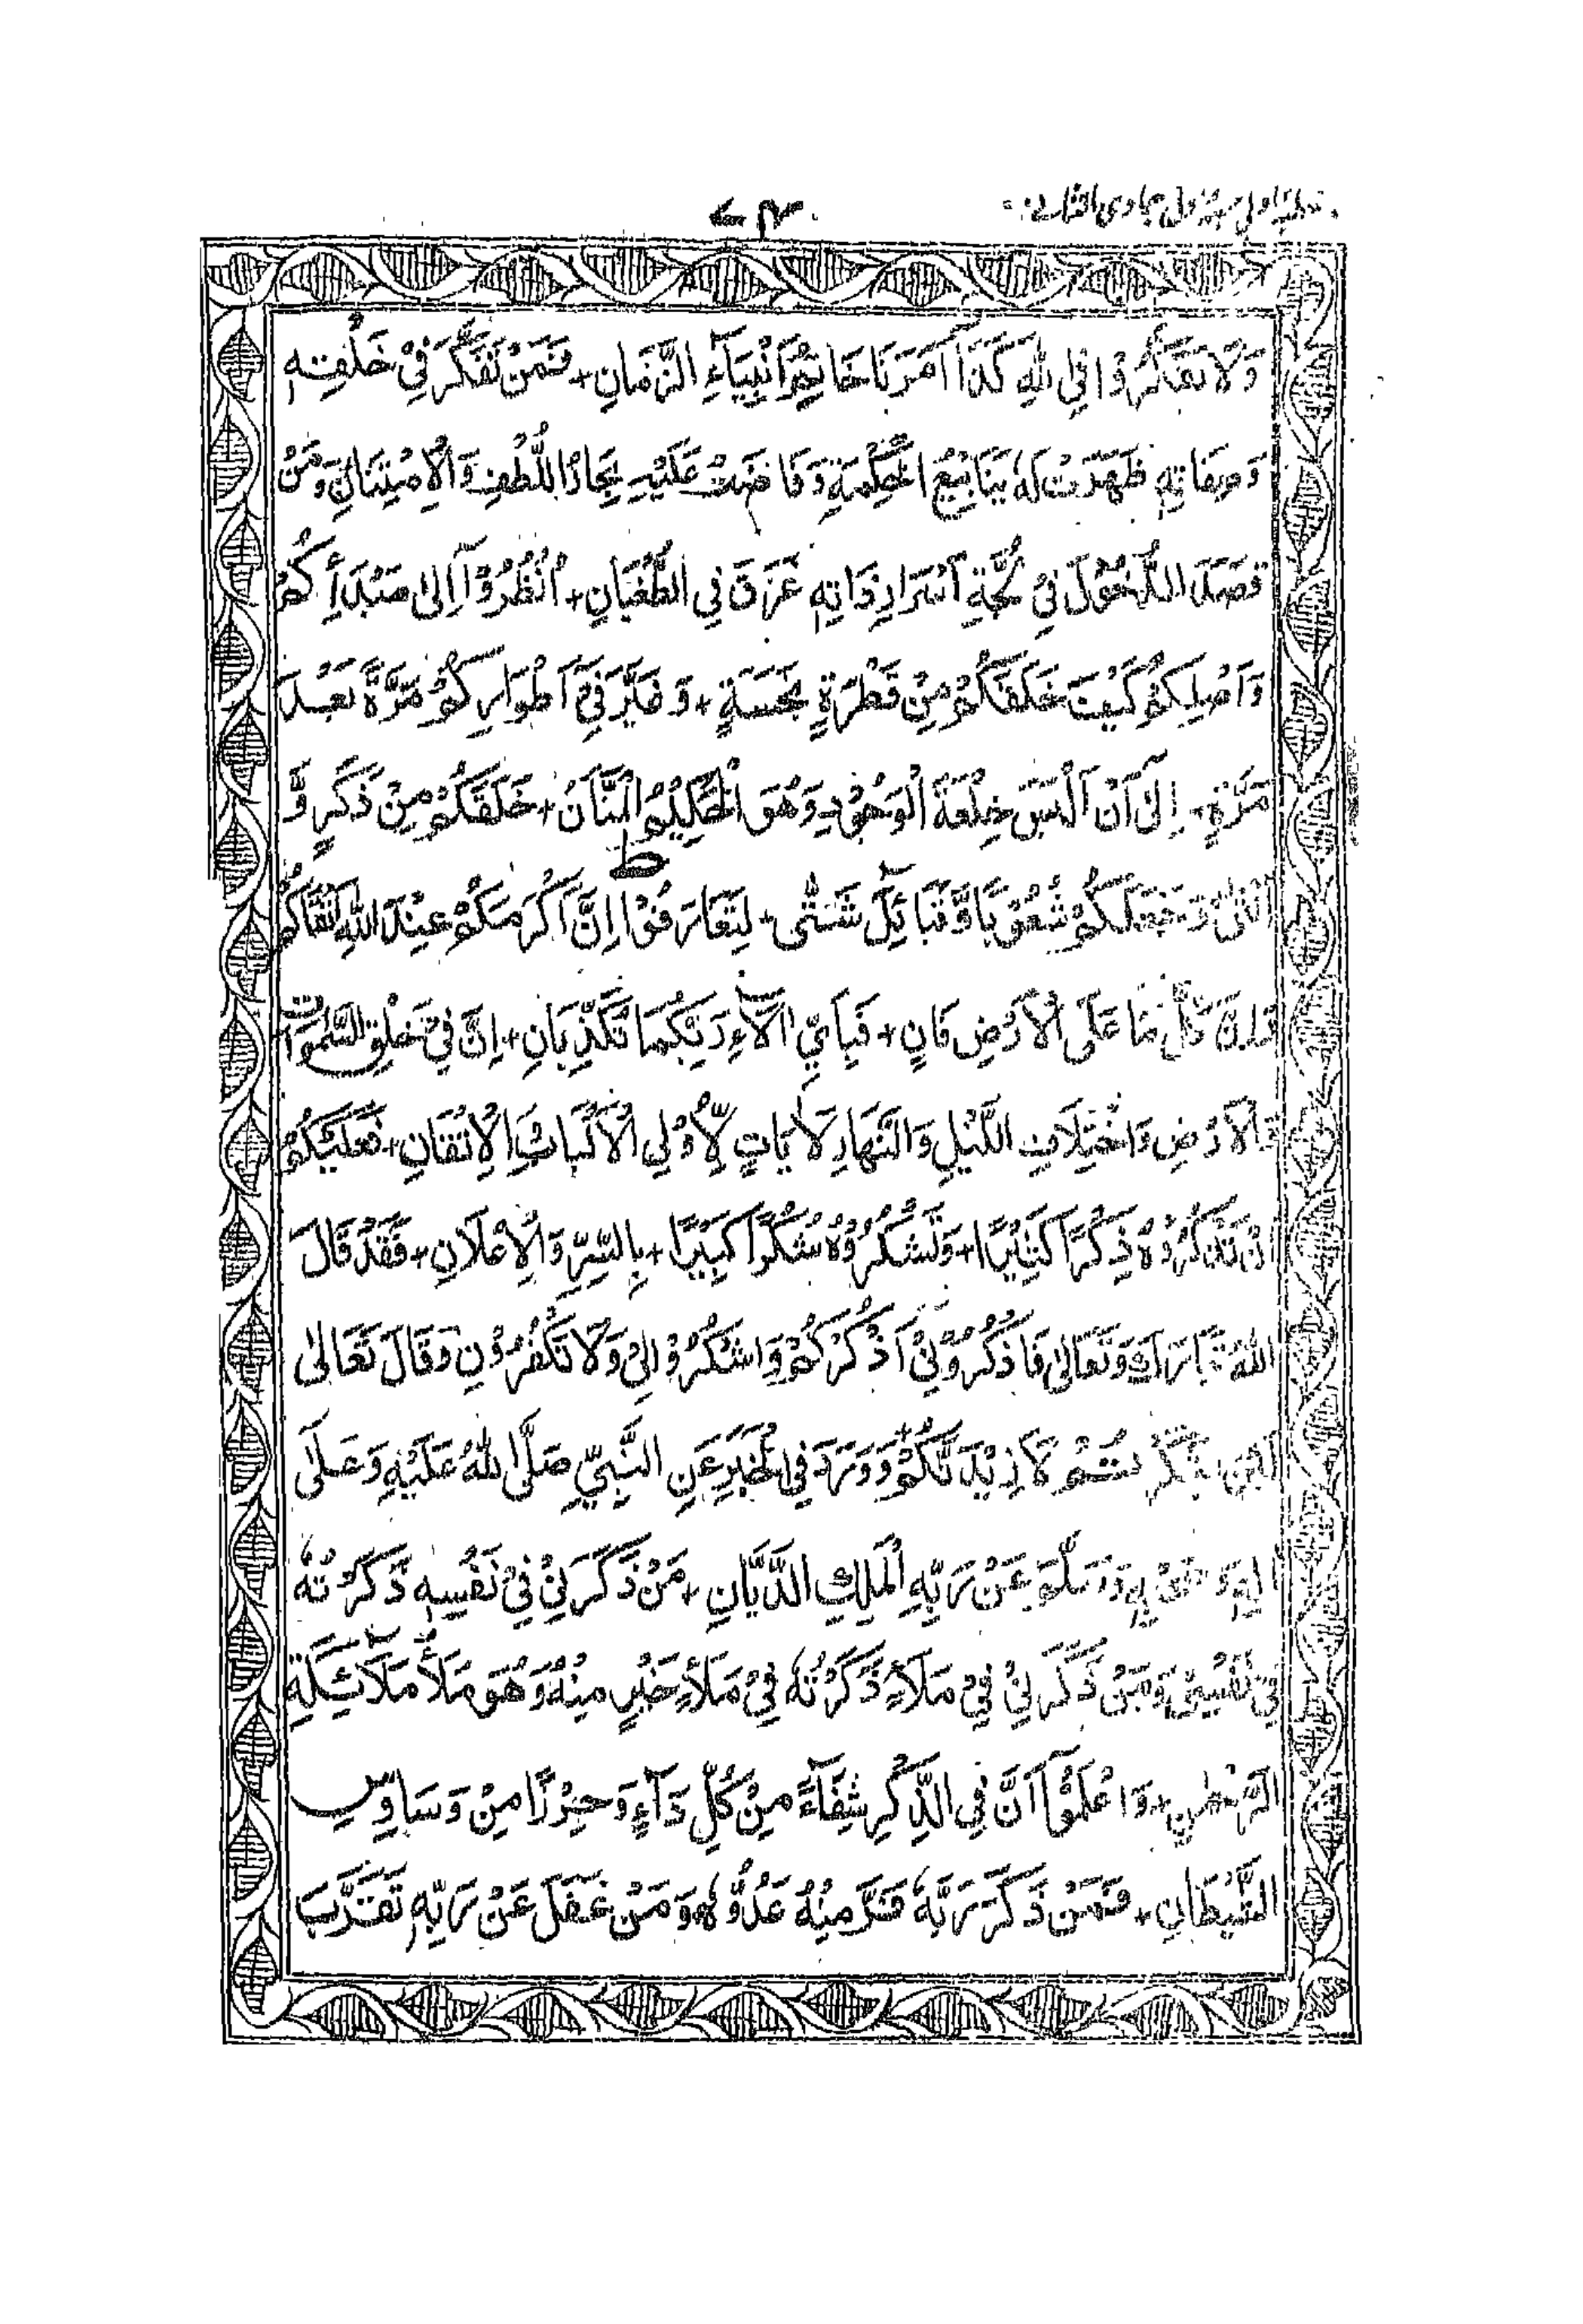 خطبۂ اولیٰ جمادی الثانی
۴۷
وَلَا تَفَكَّرُوْا فِي اللهِ كَذَا اَمَرَنَا خَاتِمُ اَنْبِيَآءِ الزَّمَانِ + فَمَنْ تَفَكَّرَ فِيْ خَلْقِهٖ
وَصِفَاتِهٖ ظَهَرَتْ لَهٗ يَنَابِيْعُ الْحِكْمَةِ وَفَاضَتْ عَلَيْهِ بِحَارُ اللُّطْفِ وَالْاِمْتِنَانِ وَمَنْ
قَصَدَ الدُّخُوْلَ فِيْ لُجَّةِ اَسْرَارِ ذَاتِهٖ غَرَقَ فِي الطُّغْيَانِ + اُنْظُرُوْآ اِلٰى مَبْدَأِكُمْ
وَاَصْلِكُمْ كَيْفَ خَلَقَكُمْ مِنْ قَطْرَةٍ نَجِسَةٍ + وَغَيَّرَ فِيْٓ اَطْوَارِكُمْ مَرَّةً بَعْدَ
مَرَّةٍ + اِلٰىٓ اَنْ اَلْبَسَ خِلْعَةَ الْوُجُوْدِ وَهُوَ الْحَكِيْمُ الْمَنَّانُ + خَلَقَكُمْ مِنْ ذَكَرٍ وَّ
اُنْثٰى وَجَعَلَكُمْ شُعُوْبًا وَّقَبَآئِلَ شَتّٰى + لِتَعَارَفُوْا اِنَّ اَكْرَمَكُمْ عِنْدَ اللهِ اَتْقَاكُمْ ط
وَاِنَّ كُلَّ مَا عَلَى الْاَرْضِ فَانٍ + فَبِاَيِّ اٰلَآءِ رَبِّكُمَا تُكَذِّبَانِ + اِنَّ فِيْ خَلْقِ السَّمٰوَاتِ
وَالْاَرْضِ وَاخْتِلَافِ اللَّيْلِ وَالنَّهَارِ لَاٰيَاتٍ لِّاُولِي الْاَلْبَابِ وَالْاِتْقَانِ + فَعَلَيْكُمْ
اَنْ تَذْكُرُوْهُ ذِكْرًا كَثِيْرًا + وَتَشْكُرُوْهُ شُكْرًا كَبِيْرًا + بِالسِّرِّ وَالْاِعْلَانِ + فَقَدْ قَالَ
اللهُ تَبَارَكَ وَتَعَالٰى فَاذْكُرُوْنِيْٓ اَذْكُرْكُمْ وَاشْكُرُوْا لِيْ وَلَا تَكْفُرُوْنِ وَقَالَ تَعَالٰى
لَئِنْ شَكَرْتُمْ لَاَزِيْدَنَّكُمْ وَوَرَدَ فِي الْخَبَرِ عَنِ النَّبِيِّ صَلَّى اللهُ عَلَيْهِ وَعَلٰى
اٰلِهٖ وَصَحْبِهٖ وَسَلَّمَ عَنْ رَبِّهِ الْمَلِكِ الدَّيَّانِ + مَنْ ذَكَرَنِيْ فِيْ نَفْسِهٖ ذَكَرْتُهٗ
فِيْ نَفْسِيْ وَمَنْ ذَكَرَنِيْ فِيْ مَلَاٍ ذَكَرْتُهٗ فِيْ مَلَأٍ خَيْرٍ مِنْهُ وَهُوَ مَلَأُ مَلَآئِكَةِ
الرَّحْمٰنِ + وَاعْلَمُوْآ اَنَّ فِي الذِّكْرِ شِفَآءً مِنْ كُلِّ دَآءٍ وَحِرْزًا مِنْ وَسَاوِسِ
الشَّيْطَانِ + فَمَنْ ذَكَرَ رَبَّهٗ فَرَّ مِنْهُ عَدُوُّهٗ وَمَنْ غَفَلَ عَنْ رَبِّهٖ تَقَرَّبَ